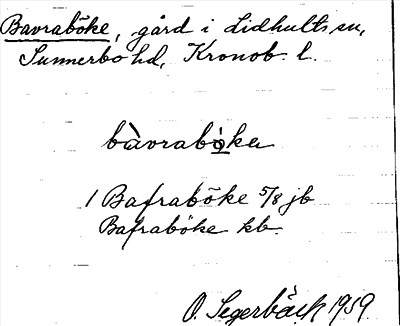 Bavraböke, gård i Lidhults sn,
Sunnerbo hd, Kronob. l.
bàvrabö̀ka
1 Bafraböke 5/8 jb
Bafraböke kb.
O. Segerbäck 1959.